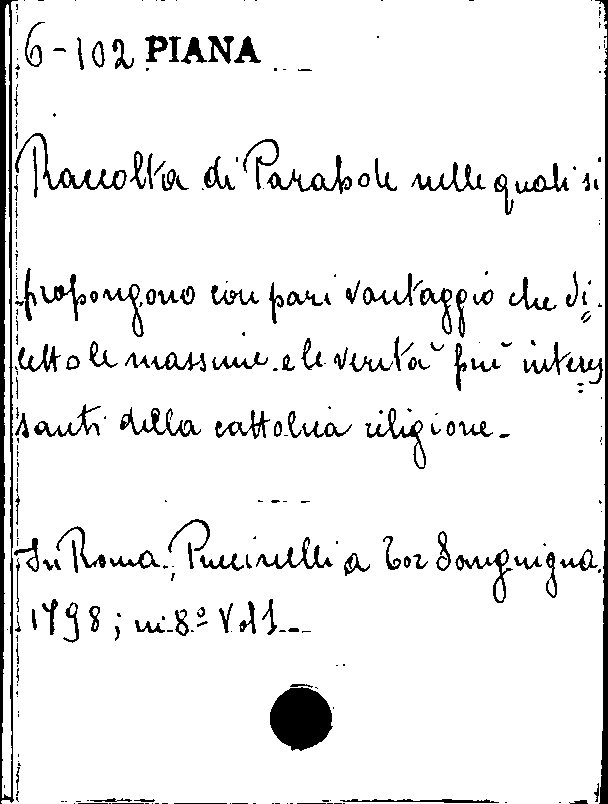 6-102 PIANA
Raccolta di Parabole nelle quali si
propongono con pari vantaggio che di=
letto le massime e le verità più interes=
santi della cattolica religione.
In Roma, Puccinelli a Tor Sanguigna.
1798; in 8º Vol 1